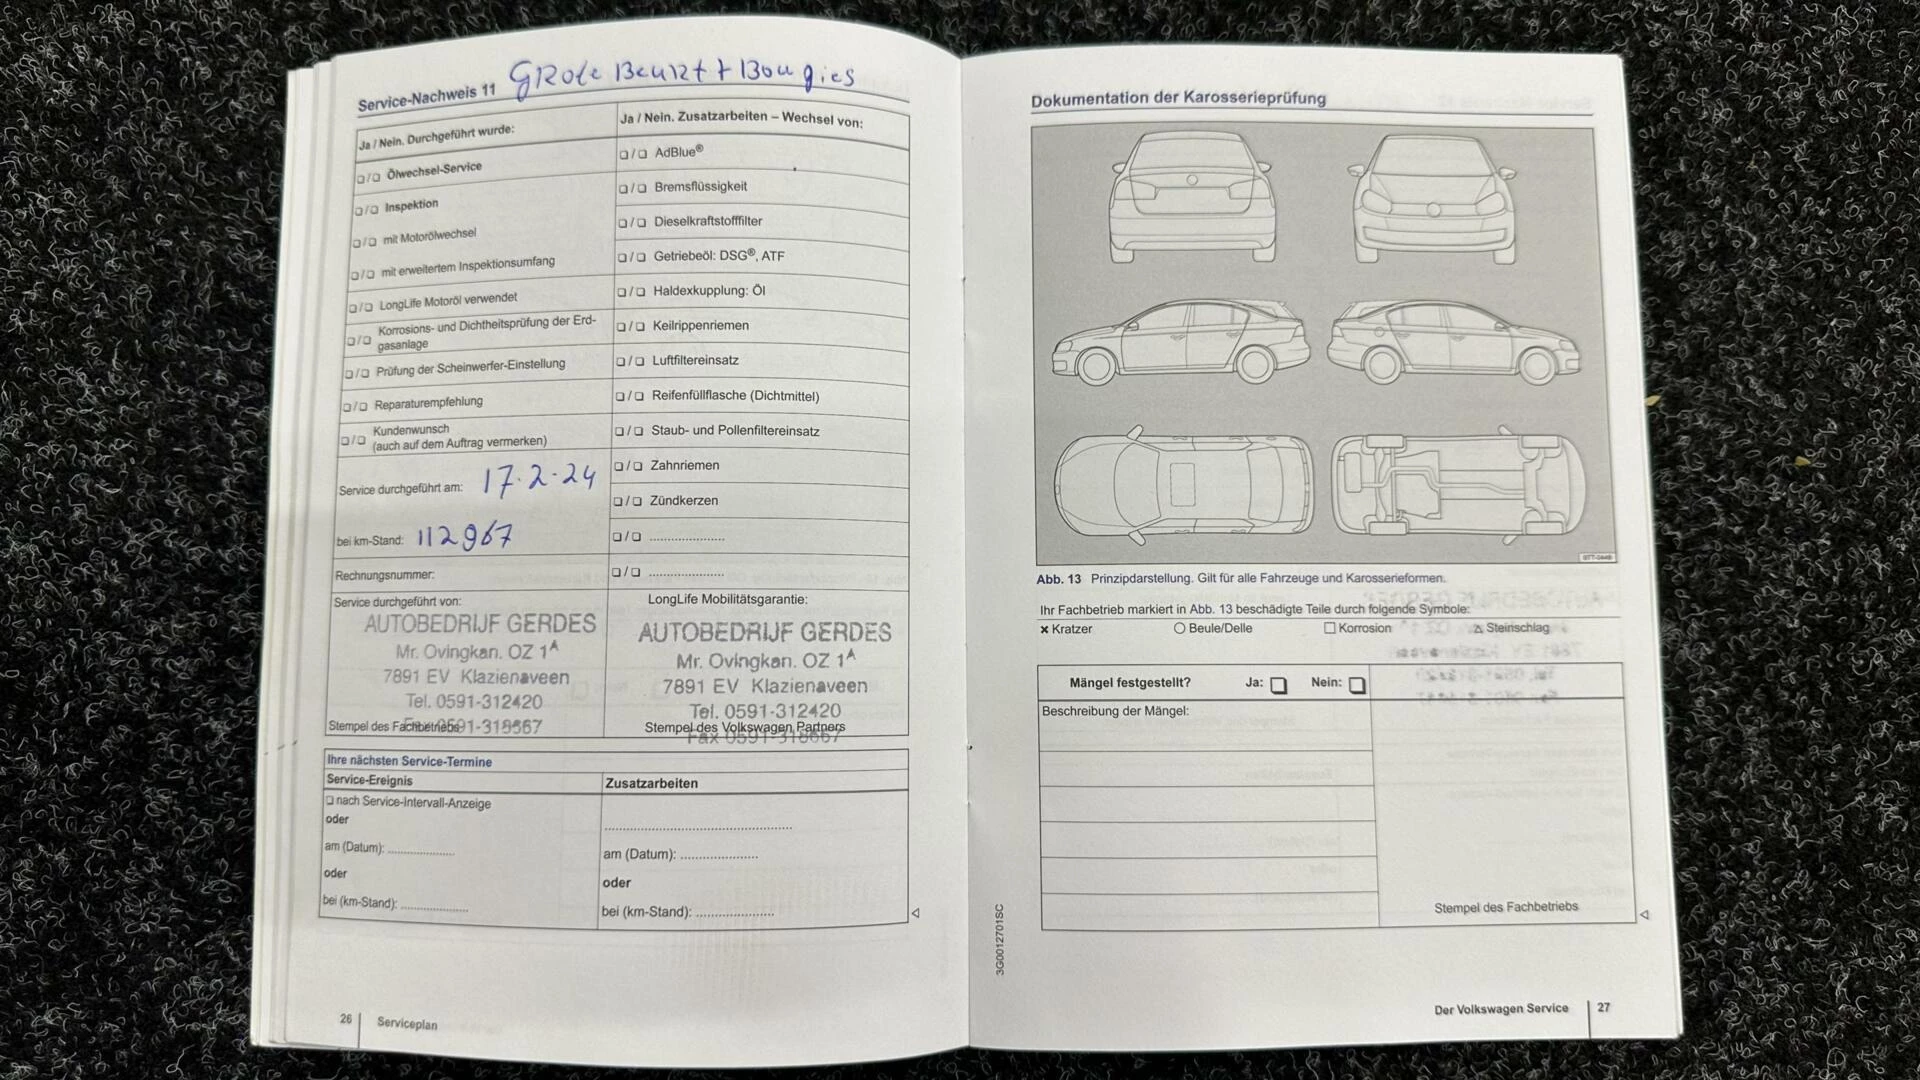 Service-Nachweis 11 GRote Beurt + Bougies
Ja / Nein. Durchgeführt wurde:
❏/❏ Ölwechsel-Service
❏/❏ Inspektion
❏/❏ mit Motorölwechsel
❏/❏ mit erweitertem Inspektionsumfang
❏/❏ LongLife Motoröl verwendet
❏/❏ Korrosions- und Dichtheitsprüfung der Erd-
gasanlage
❏/❏ Prüfung der Scheinwerfer-Einstellung
❏/❏ Reparaturempfehlung
❏/❏ Kundenwunsch
(auch auf dem Auftrag vermerken)
Service durchgeführt am: 17-2-24
bei km-Stand: 112967
Rechnungsnummer:
Service durchgeführt von:
AUTOBEDRIJF GERDES
Mr. Ovingkan. OZ 1A
7891 EV Klazienaveen
Tel. 0591-312420
Fax 0591-318667
Stempel des Fachbetriebs
Ja / Nein. Zusatzarbeiten – Wechsel von:
❏/❏ AdBlue®
❏/❏ Bremsflüssigkeit
❏/❏ Dieselkraftstofffilter
❏/❏ Getriebeöl: DSG®, ATF
❏/❏ Haldexkupplung: Öl
❏/❏ Keilrippenriemen
❏/❏ Luftfiltereinsatz
❏/❏ Reifenfüllflasche (Dichtmittel)
❏/❏ Staub- und Pollenfiltereinsatz
❏/❏ Zahnriemen
❏/❏ Zündkerzen
❏/❏ ......................
❏/❏ ......................
LongLife Mobilitätsgarantie:
AUTOBEDRIJF GERDES
Mr. Ovingkan. OZ 1A
7891 EV Klazienaveen
Tel. 0591-312420
Fax 0591-318667
Stempel des Volkswagen Partners
Ihre nächsten Service-Termine
Service-Ereignis
❏ nach Service-Intervall-Anzeige
oder
am (Datum): ...................
oder
bei (km-Stand): ...................
Zusatzarbeiten
......................................................
am (Datum): ......................
oder
bei (km-Stand): ......................
26 Serviceplan
Dokumentation der Karosserieprüfung
Abb. 13 Prinzipdarstellung. Gilt für alle Fahrzeuge und Karosserieformen.
Ihr Fachbetrieb markiert in Abb. 13 beschädigte Teile durch folgende Symbole:
× Kratzer ○ Beule/Delle □ Korrosion △ Steinschlag
Mängel festgestellt? Ja: ❏ Nein: ❏
Beschreibung der Mängel:
Stempel des Fachbetriebs
3G0012701SC
Der Volkswagen Service 27